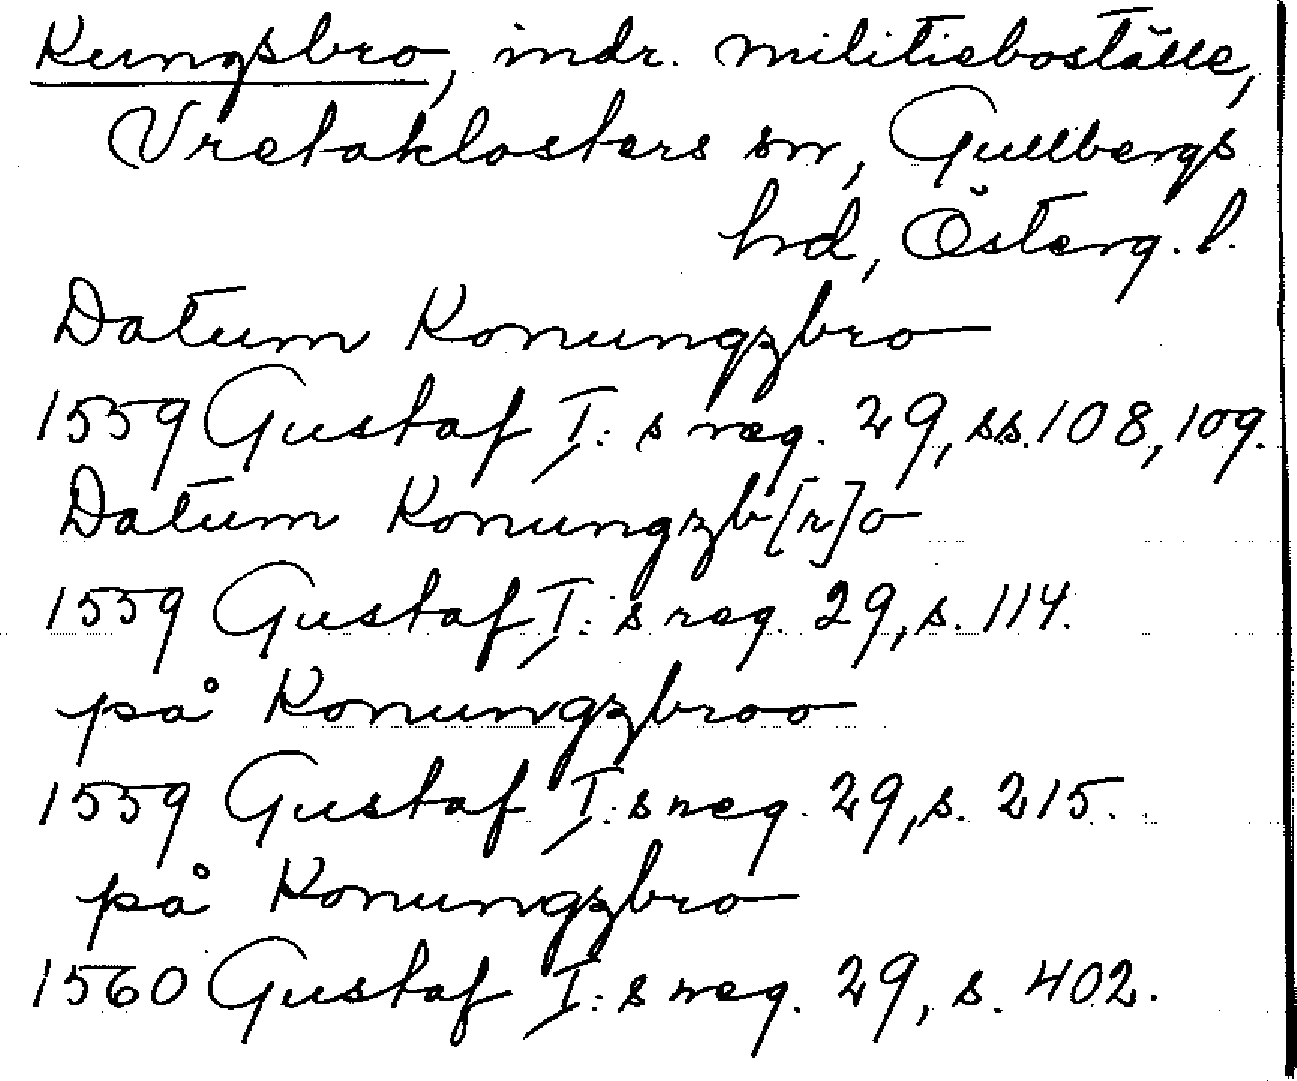 Kungsbro, indr. militieboställe,
Vretaklosters sn, Gullbergs
hd, Österg. l.
Datum Konungzbro
1559 Gustaf I: s reg. 29, ss. 108, 109.
Datum Konungzb[r]o
1559 Gustaf I: s reg. 29, s. 114.
på Konungzbroo
1559 Gustaf I: s reg. 29, s. 215.
på Konungzbro
1560 Gustaf I: s reg. 29, s. 402.